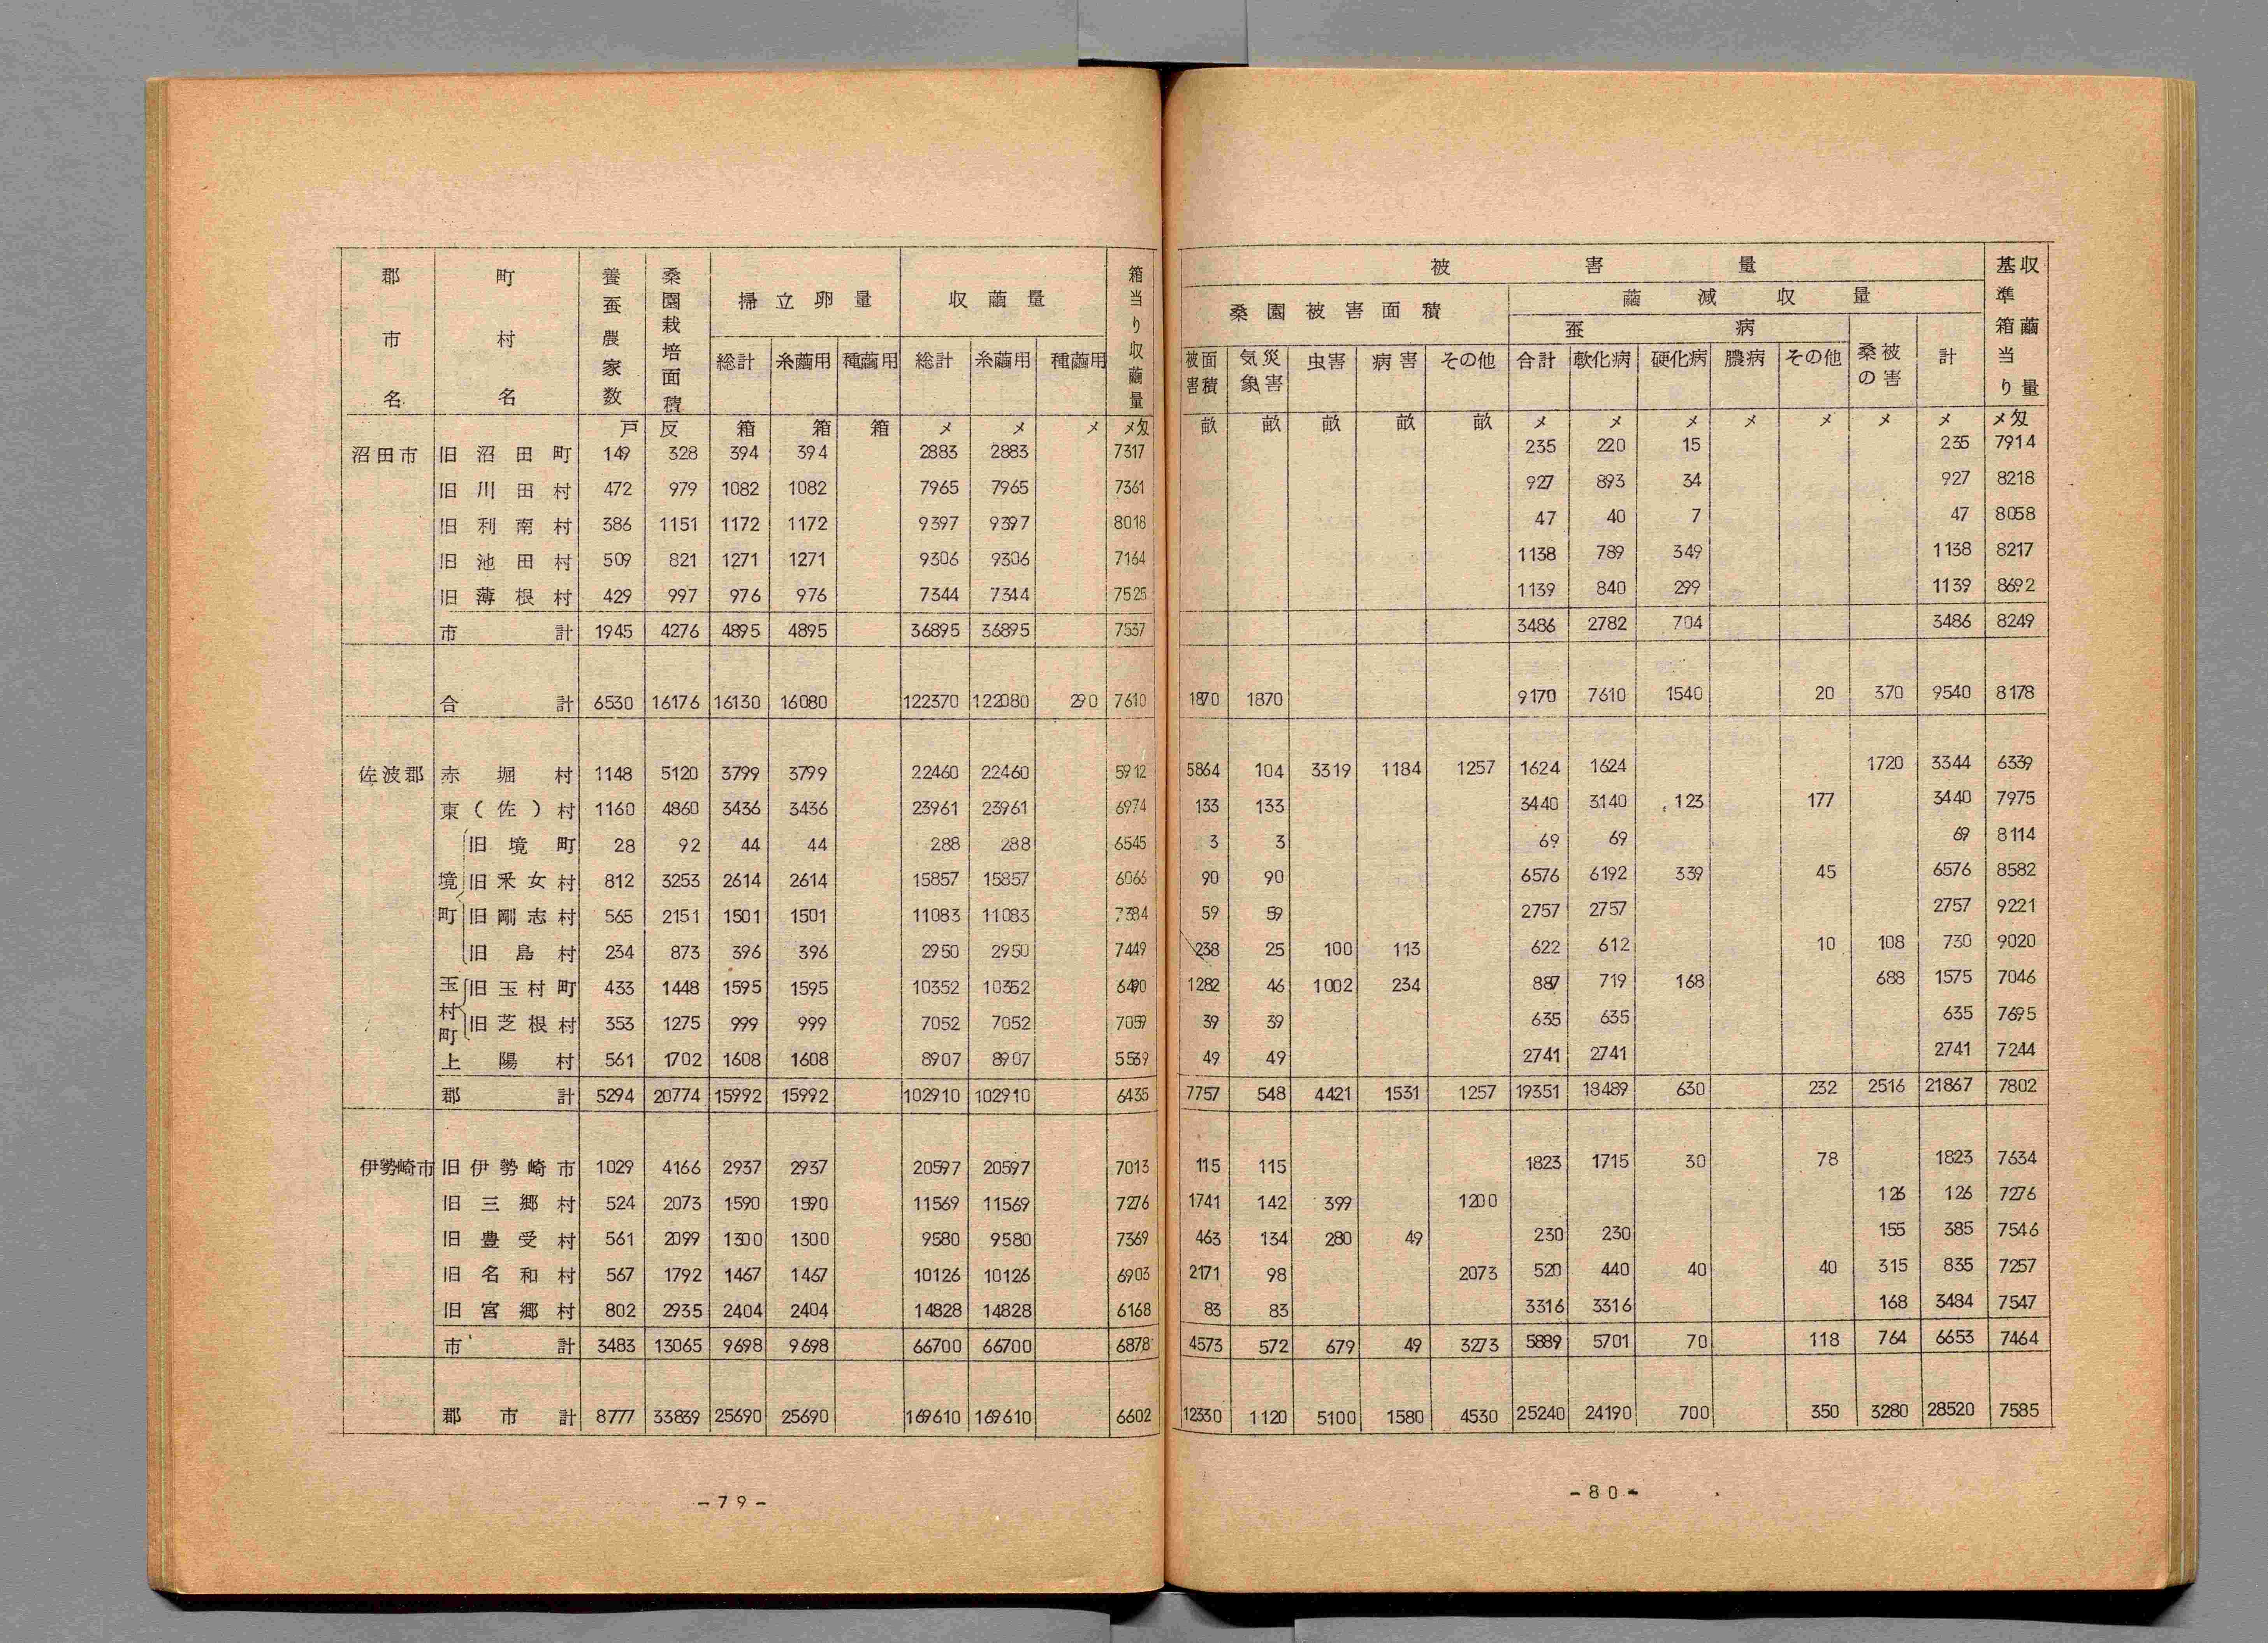 郡市名 町村名 養蚕農家数 桑園栽培面積 掃立卵量 収繭量 箱当り収繭量
総計 糸繭用 種繭用 総計 糸繭用 種繭用
戸 反 箱 箱 箱 〆 〆 〆 〆匁
沼田市 旧沼田町 149 328 394 394 2883 2883 7317
旧川田村 472 979 1082 1082 7965 7965 7361
旧利南村 386 1151 1172 1172 9397 9397 8018
旧池田村 509 821 1271 1271 9306 9306 7164
旧薄根村 429 997 976 976 7344 7344 7525
市計 1945 4276 4895 4895 36895 36895 7537
合計 6530 16176 16130 16080 122370 122080 290 7610
佐波郡 赤堀村 1148 5120 3799 3799 22460 22460 5912
東(佐)村 1160 4860 3436 3436 23961 23961 6974
境町 旧境町 28 92 44 44 288 288 6545
旧釆女村 812 3253 2614 2614 15857 15857 6066
旧剛志村 565 2151 1501 1501 11083 11083 7384
旧島村 234 873 396 396 2950 2950 7449
玉村町 旧玉村町 433 1448 1595 1595 10352 10352 6490
旧芝根村 353 1275 999 999 7052 7052 7059
上陽村 561 1702 1608 1608 8907 8907 5539
郡計 5294 20774 15992 15992 102910 102910 6435
伊勢崎市 旧伊勢崎市 1029 4166 2937 2937 20597 20597 7013
旧三郷村 524 2073 1590 1590 11569 11569 7276
旧豊受村 561 2099 1300 1300 9580 9580 7369
旧名和村 567 1792 1467 1467 10126 10126 6903
旧宮郷村 802 2935 2404 2404 14828 14828 6168
市計 3483 13065 9698 9698 66700 66700 6878
郡市計 8777 33839 25690 25690 169610 169610 6602
-79-
被害量 基準箱当り収繭量
桑園被害面積 繭減収量
蚕病 桑の被害 計
被害面積 気象災害 虫害 病害 その他 合計 軟化病 硬化病 膿病 その他
畝 畝 畝 畝 畝 〆 〆 〆 〆 〆 〆 〆 〆匁
235 220 15 235 7914
927 893 34 927 8218
47 40 7 47 8058
1138 789 349 1138 8217
1139 840 299 1139 8692
3486 2782 704 3486 8249
1870 1870 9170 7610 1540 20 370 9540 8178
5864 104 3319 1184 1257 1624 1624 1720 3344 6339
133 133 3440 3140 123 177 3440 7975
3 3 69 69 69 8114
90 90 6576 6192 339 45 6576 8582
59 59 2757 2757 2757 9221
238 25 100 113 622 612 10 108 730 9020
1282 46 1002 234 887 719 168 688 1575 7046
39 39 635 635 635 7695
49 49 2741 2741 2741 7244
7757 548 4421 1531 1257 19351 18489 630 232 2516 21867 7802
115 115 1823 1715 30 78 1823 7634
1741 142 399 1200 126 126 7276
463 134 280 49 230 230 155 385 7546
2171 98 2073 520 440 40 40 315 835 7257
83 83 3316 3316 168 3484 7547
4573 572 679 49 3273 5889 5701 70 118 764 6653 7464
12330 1120 5100 1580 4530 25240 24190 700 350 3280 28520 7585
-80-